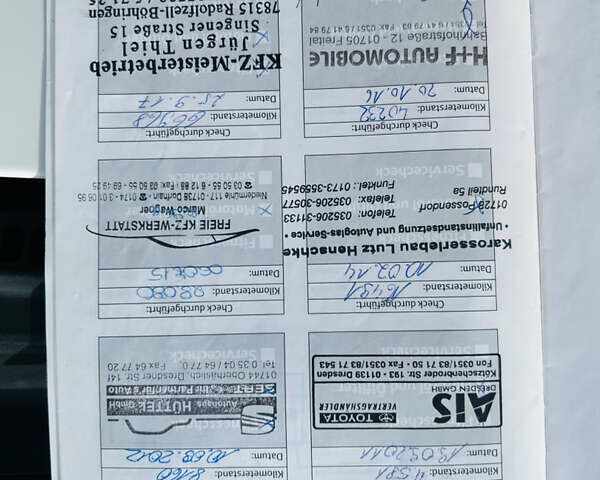 Kilometerstand: 4.581
Datum: 19.09.2011
AIS
DRESDEN GMBH
TOYOTA
VERTRAGSHÄNDLER
Kötzschenbroder Str. 193 · 01139 Dresden
Fon 0351/83 71 50 · Fax 0351/83 71 543
Kilometerstand: 8.160
Datum: 10.09.2012
Autohaus GmbH
HÜTTEL
SEAT
Ihr Partner für's Auto
01744 Oberhäslich, Dresdner Str. 14f
Tel. 0 35 04 / 64 77 0 / Fax 64 77 20
Check durchgeführt:
Kilometerstand: 16.491
Datum: 10.02.14
Karosseriebau Lutz Henschke
- Unfallinstandsetzung und Autoglas-Service -
01728 Possendorf
Rundteil 5a
Telefon: 035206-31133
Telefax: 035206-30571
Funktel.: 0173-3589545
Servicecheck
Check durchgeführt:
Kilometerstand: 28.080
Datum:
FREIE KFZ-WERKSTATT
Marco Wagner
Niedermühle 117 · 01738 Dorfhain · ☎ 0174 - 3 01 06 95
☎ 03 50 55 - 6 12 88 · Fax: 03 50 55 - 69 49 25
Servicecheck
Check durchgeführt:
Kilometerstand: 40232
Datum: 20.10.16
H+F AUTOMOBILE
Bahnhofstraße 12 · 01705 Freital
Tel. 0351/6 41 79 03 · Fax: 0351/6 41 79 84
Check durchgeführt:
Kilometerstand: 66968
Datum: 25.9.17
KFZ-Meisterbetrieb
Jürgen Thiel
Singener Straße 15
78315 Radolfzell-Böhringen